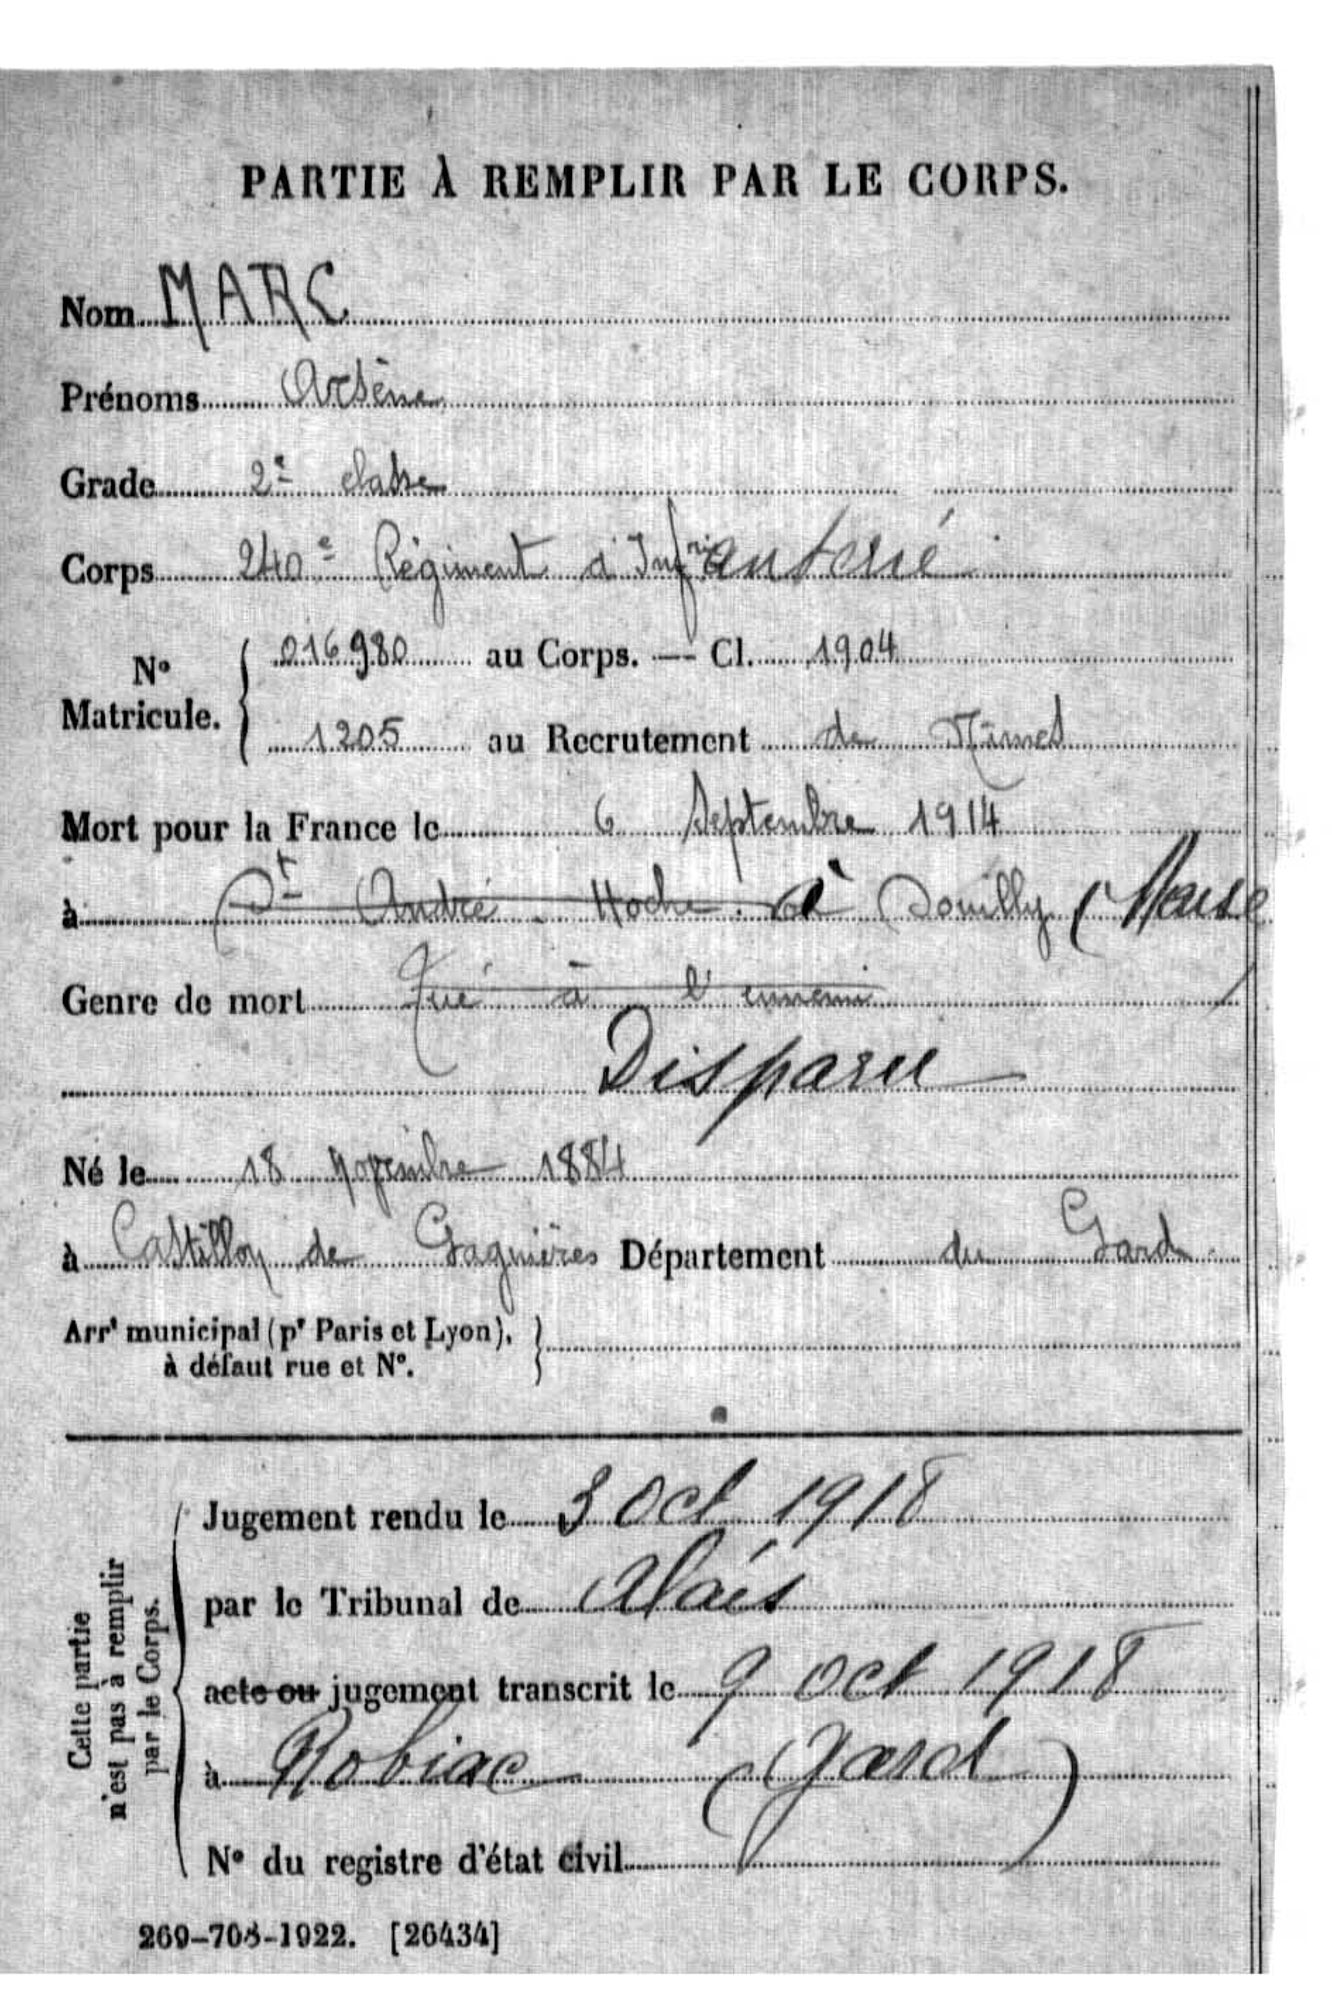 PARTIE À REMPLIR PAR LE CORPS.
Nom MARC
Prénoms Arsène
Grade 2e classe
Corps 240e Régiment d'Infrie anterie
N° Matricule. 016980 au Corps. — Cl. 1904
1205 au Recrutement de Nîmes
Mort pour la France le 6 Septembre 1914
à St André - Hoche. à Souilly (Meuse)
Genre de mort Tué à l'ennemi
Disparu
Né le 18 novembre 1884
à Castillon de Gagnières Département du Gard.
Arrt municipal (pr Paris et Lyon),
à défaut rue et N°.
Cette partie n'est pas à remplir par le Corps.
Jugement rendu le 3 Oct 1918
par le Tribunal de Alais
acte ou jugement transcrit le 9 Oct 1918
à Robiac (Gard)
N° du registre d'état civil
269-708-1922. [26434]